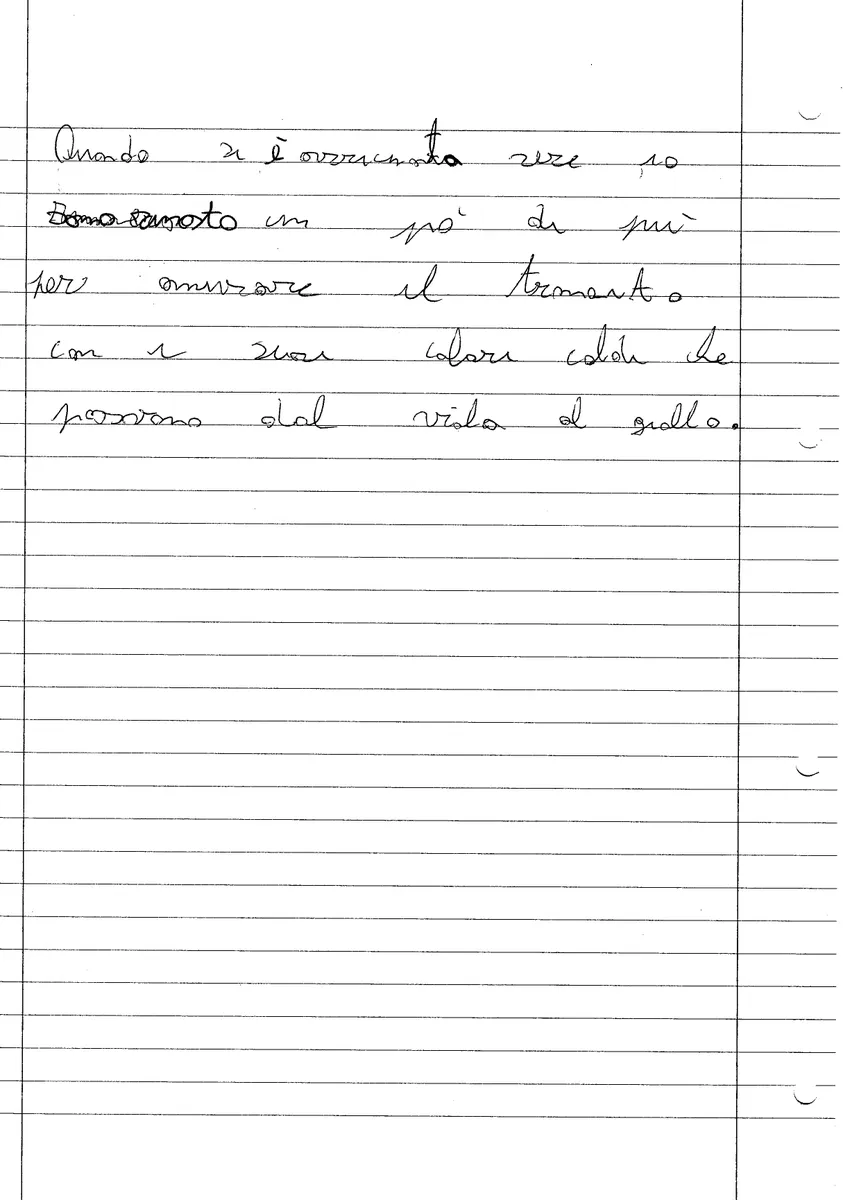 Quando si è avvicinata sera io
sono rimasto un pò di più
per ammirare il tramonto
con i suoi colori caldi che
passavano dal viola al giallo.